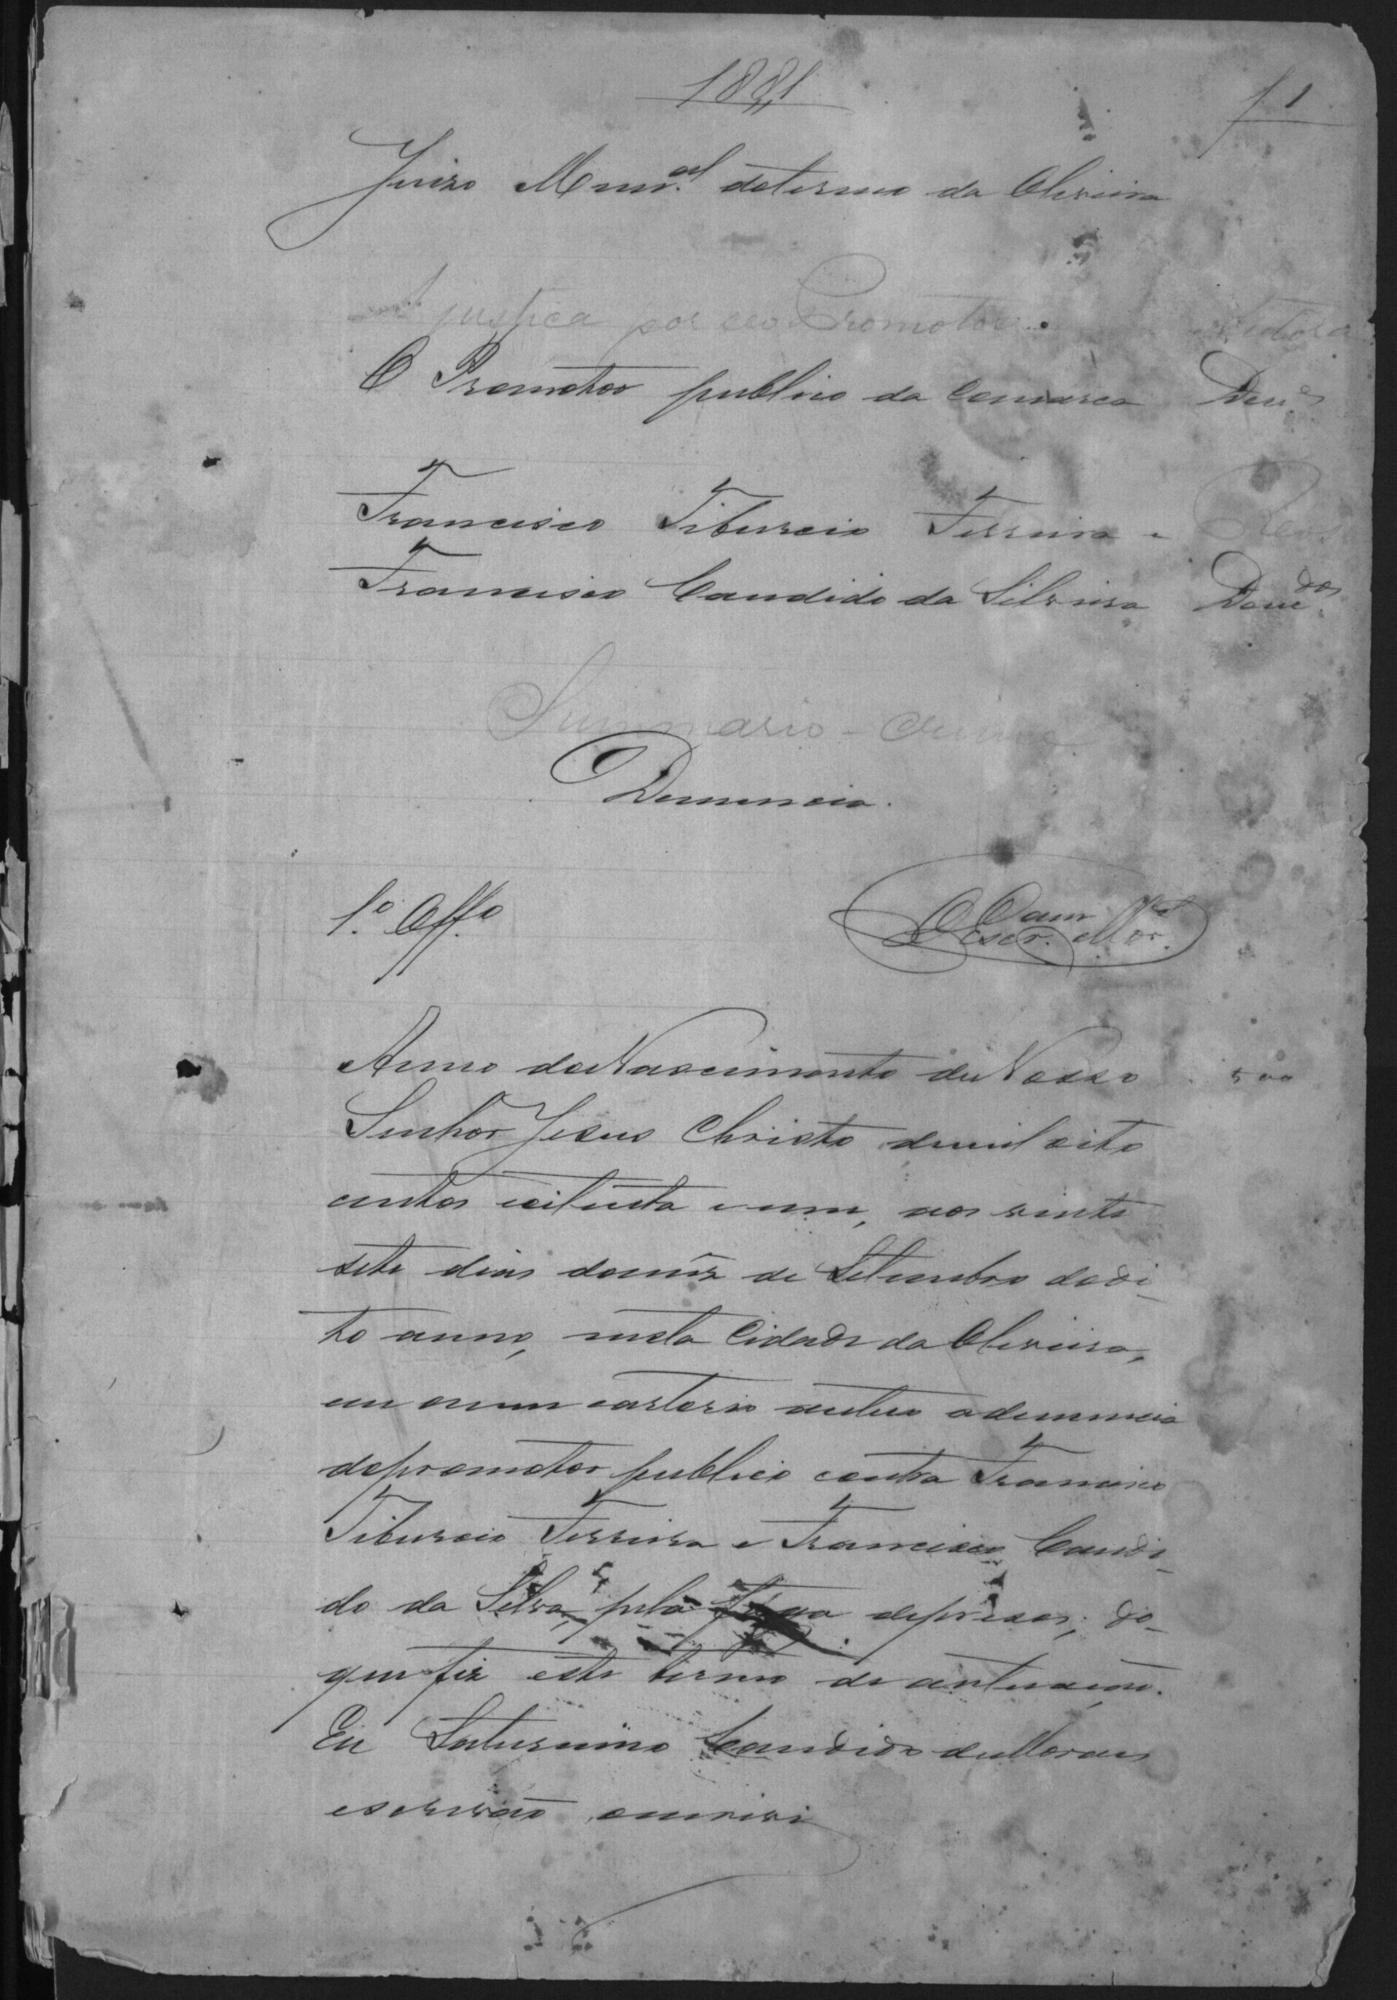 1881
f 1
Juizo Mun.al do termo da Oliveira
A justiça por seo Promotor. Autora
O Promotor publico da Comarca Den.e
Francisco Tiburcio Ferreira e Reos
Francisco Candido da Silveira Denc.dos
Summario-crime
Denuncia.
1.º Off.º
O Escr. Mor.
Anno do Nascimento de Nosso 500
Senhor Jesus Christo de mil oito
centos e oitenta e um, aos vinte
sete dias do mez de Setembro do di-
to anno, nesta Cidade da Oliveira,
em o meu cartorio autuo a denuncia
do promotor publico contra Francisco
Tiburcio Ferreira e Francisco Candi-
do da Silva, pela fuga de presos; do
que fiz este termo de autuação.
Eu Saturnino Candido de Moraes
escrivão escrivi